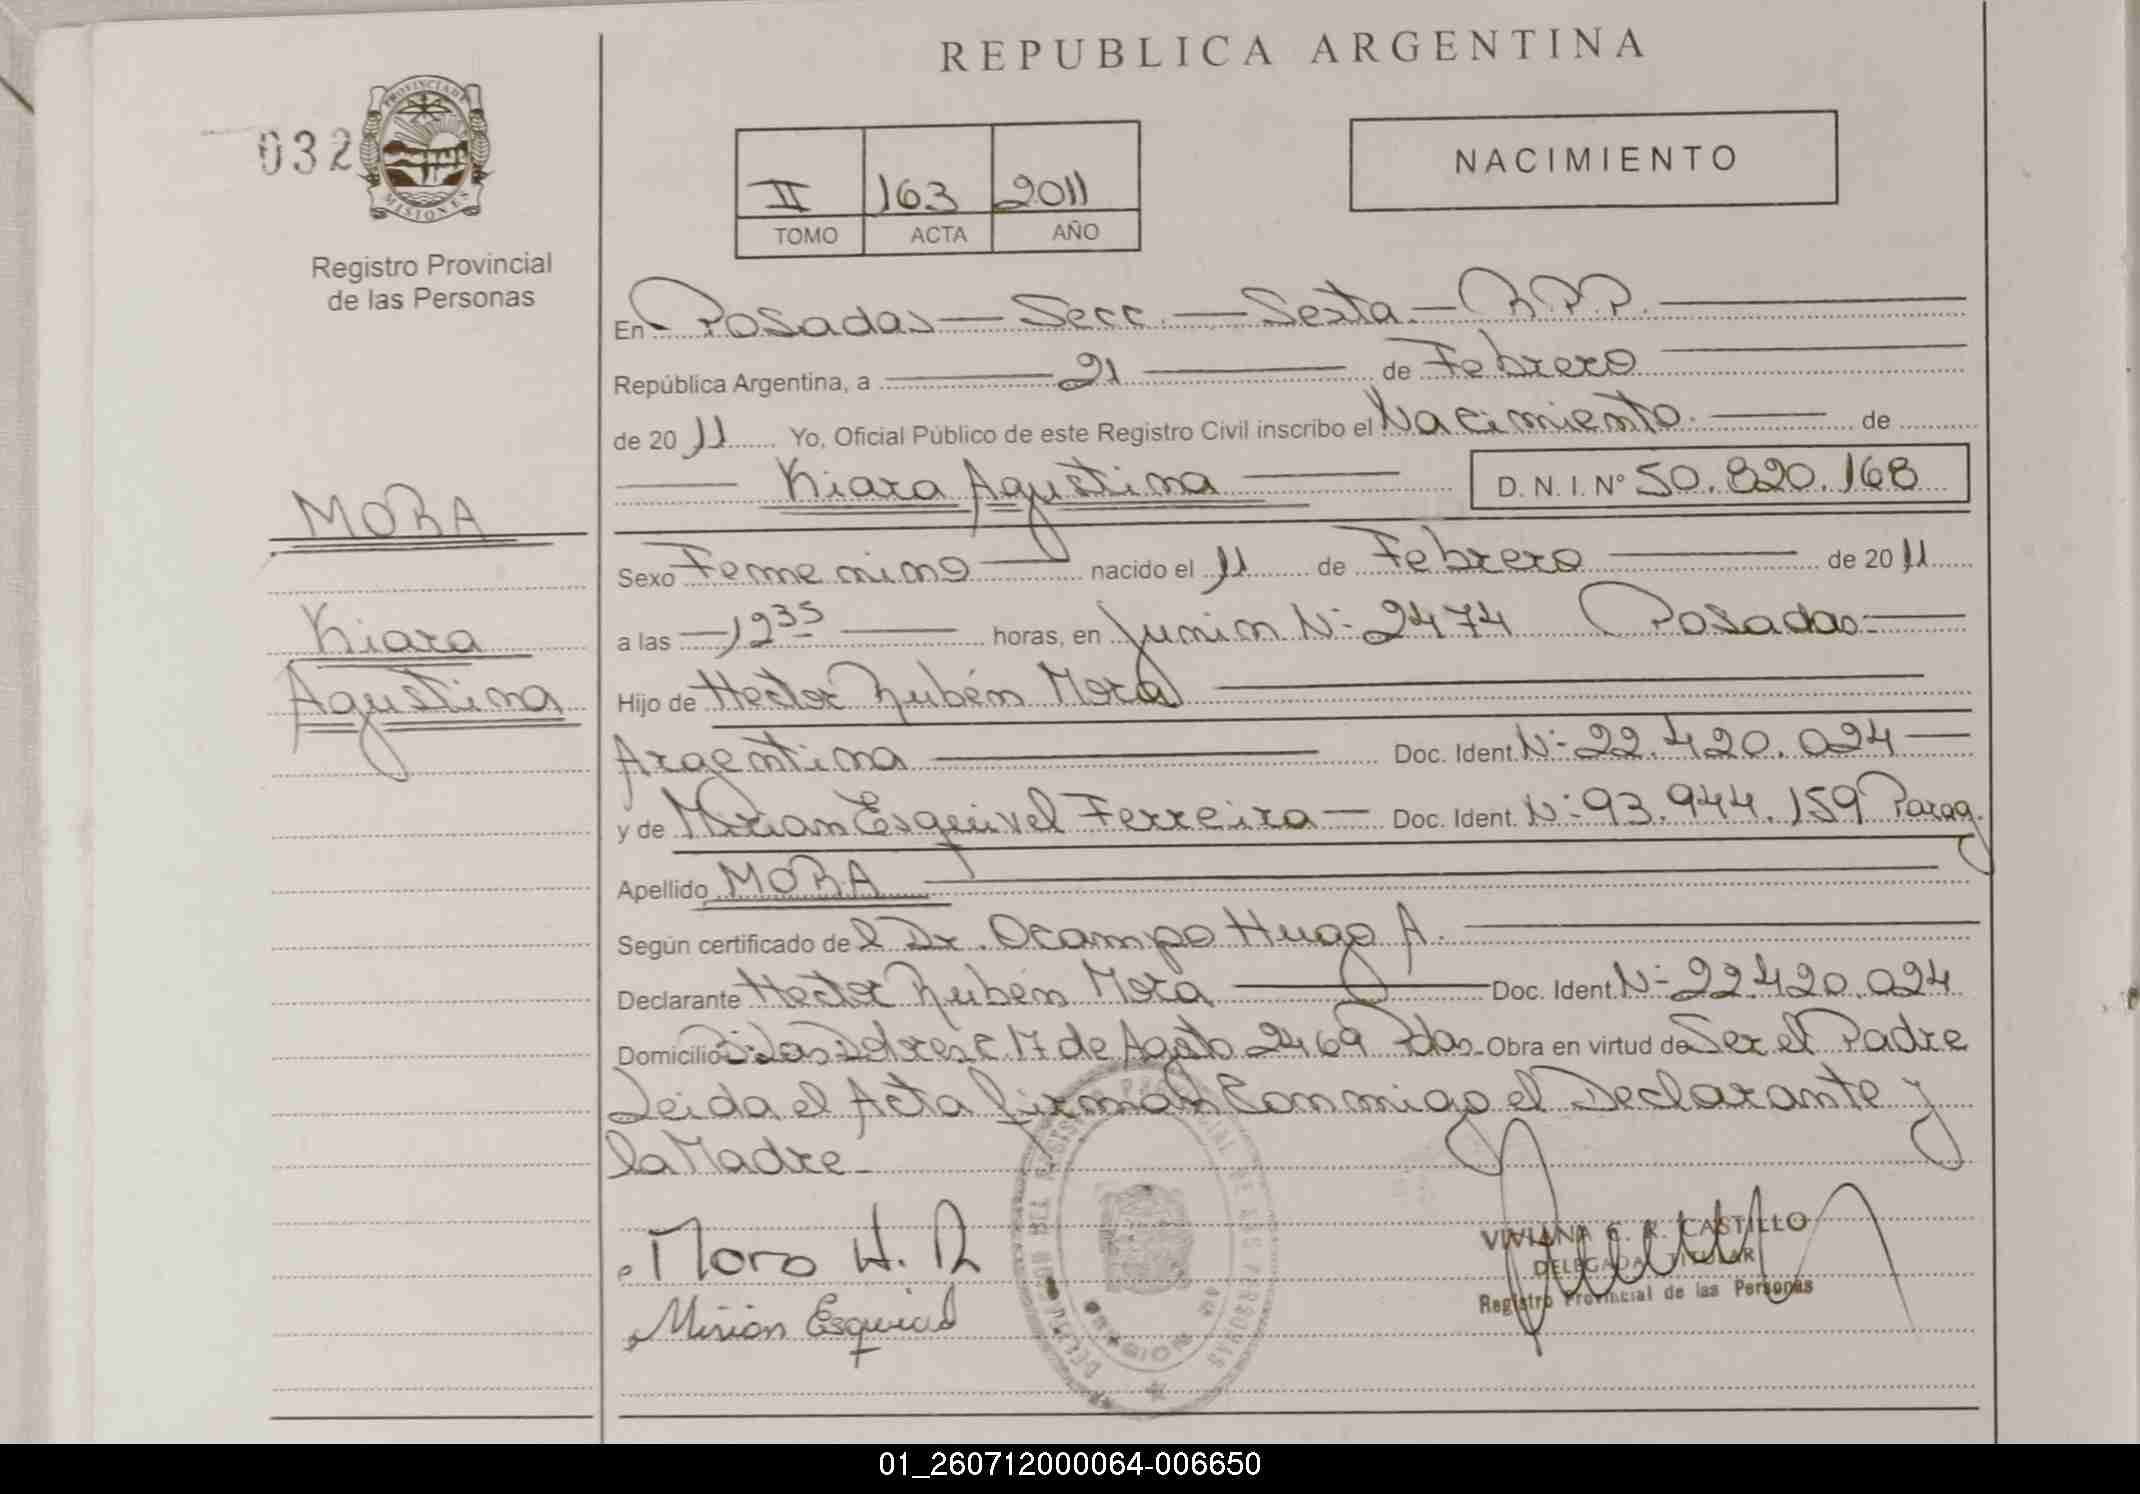 REPUBLICA ARGENTINA
032
PROVINCIA DE MISIONES
Registro Provincial
de las Personas
II 163 2011
TOMO ACTA AÑO
NACIMIENTO
En Posadas — Secc. — Sexta. — R.P.P.
República Argentina, a 21 de Febrero
de 20 11 Yo, Oficial Público de este Registro Civil inscribo el Nacimiento. de
Kiara Agustina D. N. I. N° 50.820.168
MORA
Kiara
Agustina
Sexo Femenino nacido el 11 de Febrero de 20 11
a las 12 35 horas, en Junin N° 2474 Posadas.
Hijo de Hector Rubén Mora
Argentina Doc. Ident. N° 22.420.024
y de Mirian Esquivel Ferreira — Doc. Ident. N° 93.944.159 Parag.
Apellido MORA
Según certificado de l Dr. Ocampo Hugo A.
Declarante Hector Rubén Mora Doc. Ident. N° 22.420.024
Domicilio 17 de Agosto 2469 Pdas. Obra en virtud de Ser el Padre
Leida el Acta firman Conmigo el Declarante y
la Madre
Mora H. R
Mirian Esquivel
VIVIANA C. R. CASTILLO
DELEGADA TITULAR
Registro Provincial de las Personas
01_260712000064-006650